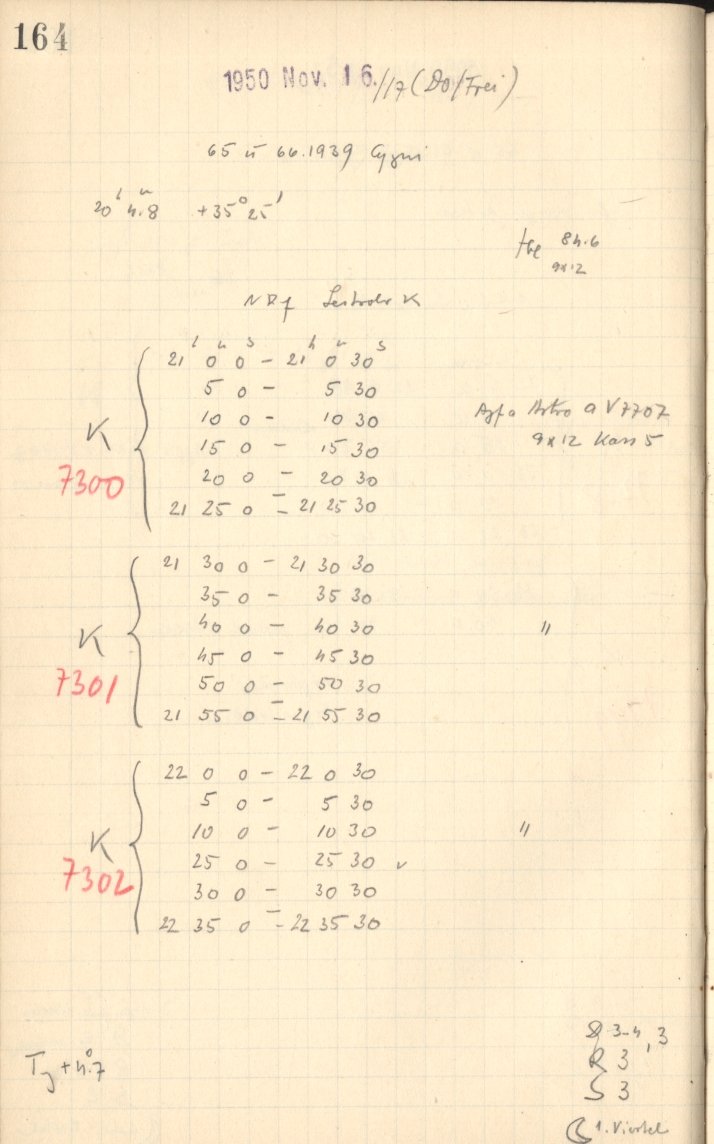 164
1950 Nov. 16./17 (Do/Frei)
65 u 66.1939 Cygni
20h 4m.8 +35° 25'
84.6
9x12
K
21h 0m 0s - 21h 0m 30s
5 0 - 5 30
10 0 - 10 30
Agfa Astro a V 7707
15 0 - 15 30
9x12 Kass 5
K
20 0 - 20 30
7300
21 25 0 - 21 25 30
21 30 0 - 21 30 30
35 0 - 35 30
40 0 - 40 30 "
K
45 0 - 45 30
7301
50 0 - 50 30
21 55 0 - 21 55 30
22 0 0 - 22 0 30
5 0 - 5 30
10 0 - 10 30 "
K
25 0 - 25 30 v
7302
30 0 - 30 30
22 35 0 - 22 35 30
3-4, 3
R 3
S 3
+4°.7
1. Viertel